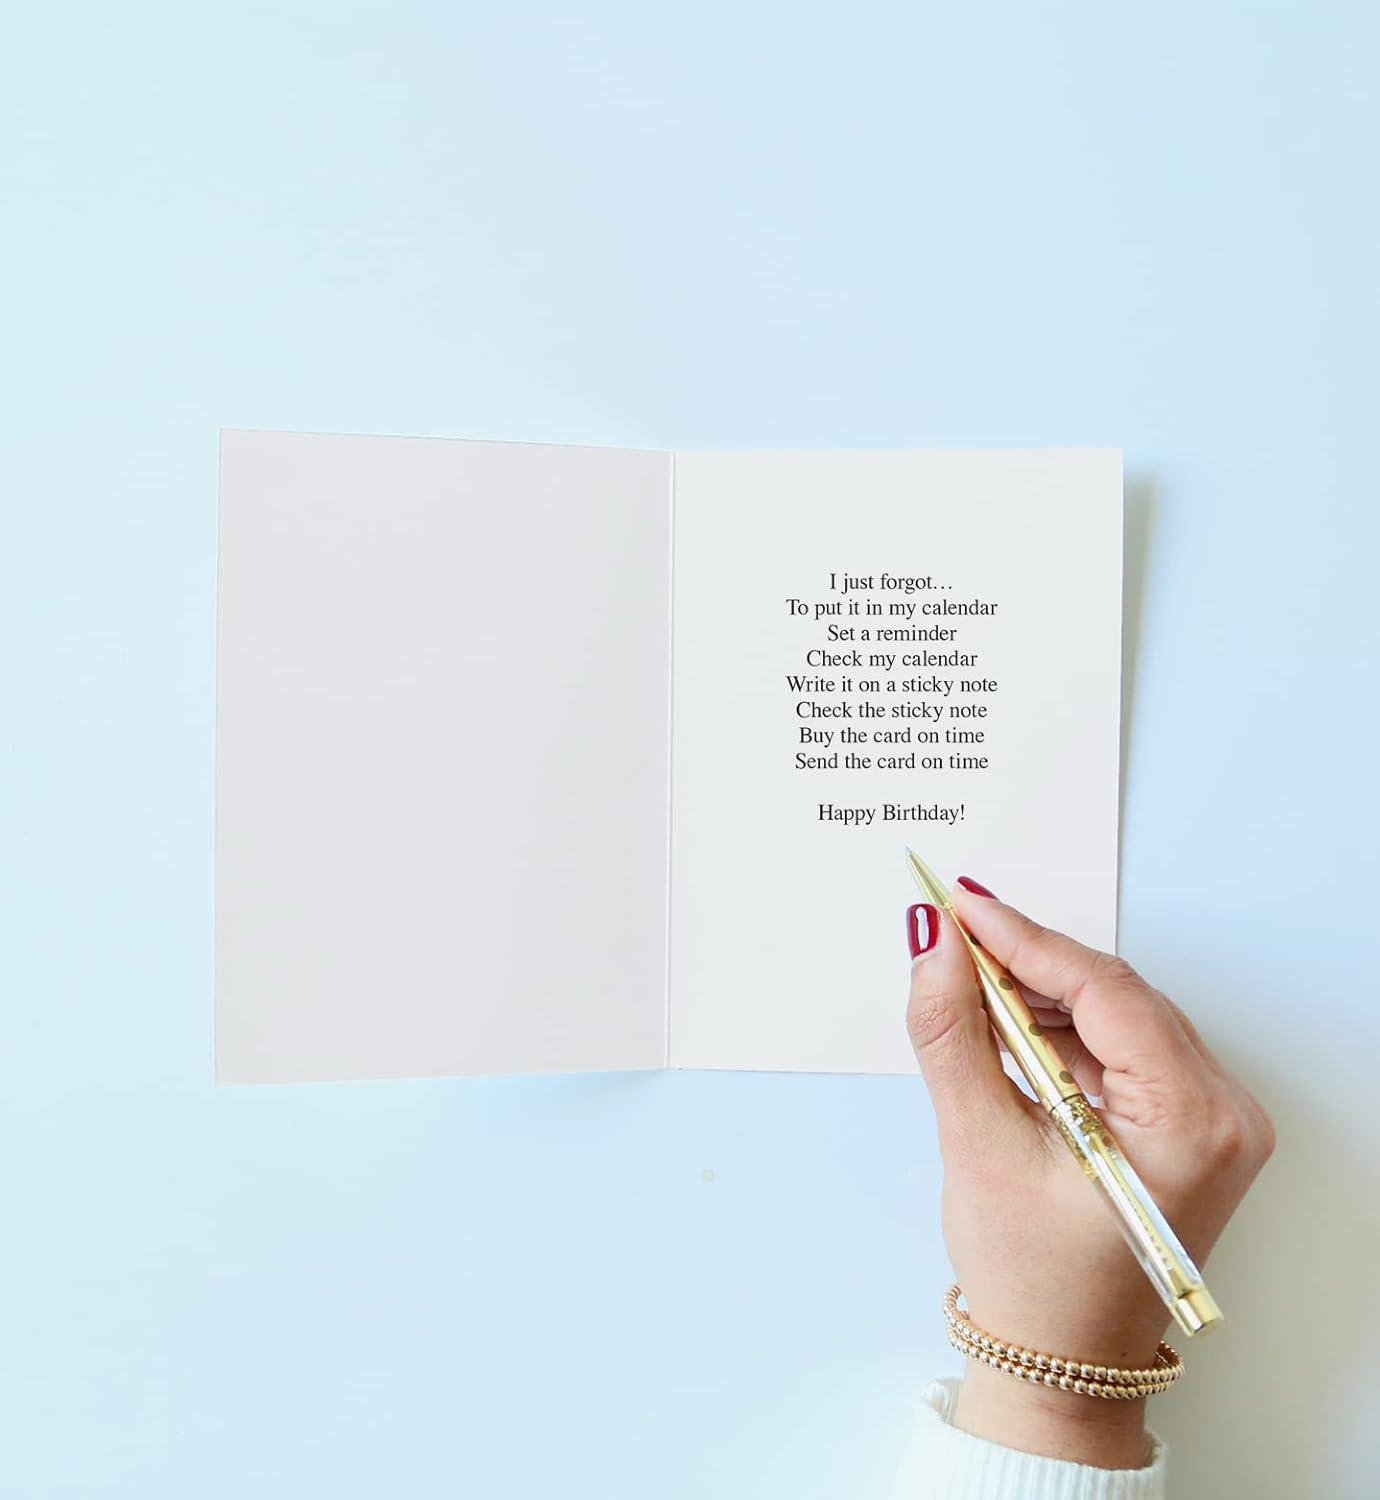 I just forgot...
To put it in my calendar
Set a reminder
Check my calendar
Write it on a sticky note
Check the sticky note
Buy the card on time
Send the card on time
Happy Birthday!